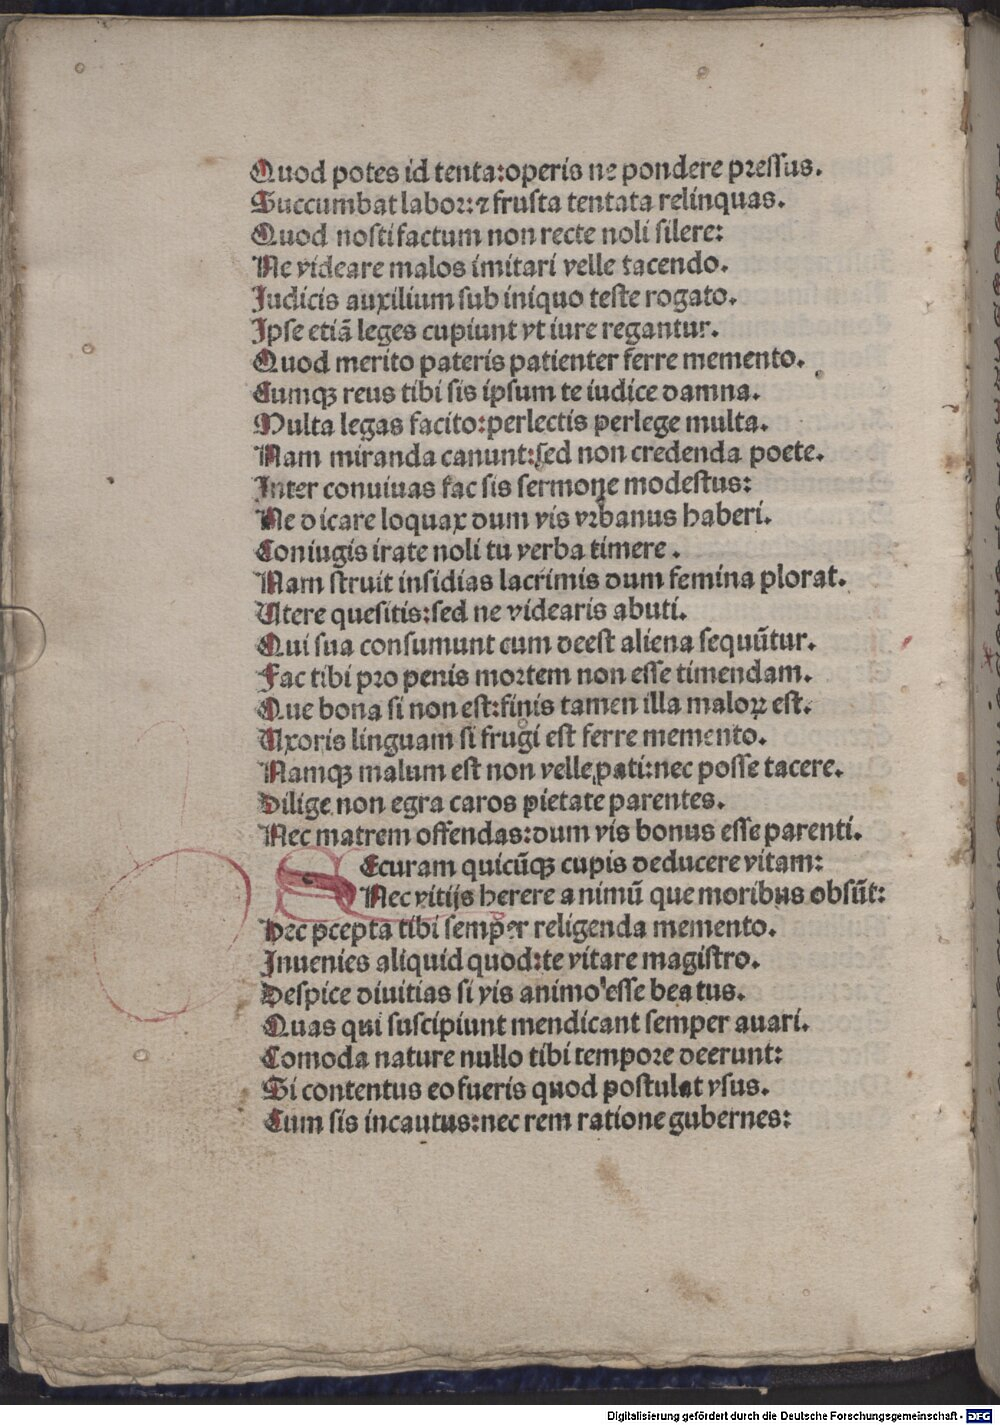 Quod potes id tenta:operis ne pondere pressus.
Succumbat labor:⁊ frusta tentata relinquas.
Quod nosti factum non recte noli silere:
Ne videare malos imitari velle tacendo.
Judicis auxilium sub iniquo teste rogato.
Ipse etiā leges cupiunt vt iure regantur.
Quod merito pateris patienter ferre memento.
Cumqꝫ reus tibi sis ipsum te iudice damna.
Multa legas facito:perlectis perlege multa.
Nam miranda canunt:sed non credenda poete.
Inter conuiuas fac sis sermone modestus:
Ne dicare loquax dum vis vrbanus haberi.
Coniugis irate noli tu verba timere.
Nam struit insidias lacrimis dum femina plorat.
Utere quesitis:sed ne videaris abuti.
Qui sua consumunt cum deest aliena sequūtur.
Fac tibi pro penis mortem non esse timendam.
Que bona si non est:finis tamen illa maloꝝ est.
Uxoris linguam si frugi est ferre memento.
Namqꝫ malum est non velle pati:nec posse tacere.
Dilige non egra caros pietate parentes.
Nec matrem offendas:dum vis bonus esse parenti.
SEcuram quicūqꝫ cupis deducere vitam:
Nec vitijs herere animū que moribus obsūt:
Hec pcepta tibi semper religenda memento.
Inuenies aliquid quod:te vitare magistro.
Despice diuitias si vis animo esse beatus.
Quas qui suscipiunt mendicant semper auari.
Comoda nature nullo tibi tempore deerunt:
Si contentus eo fueris quod postulat vsus.
Cum sis incautus:nec rem ratione gubernes:
Digitalisierung gefördert durch die Deutsche Forschungsgemeinschaft - DFG